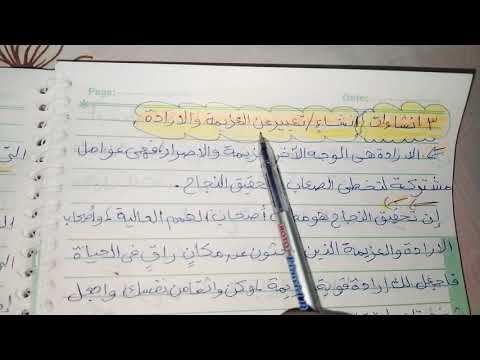 Page: Date:
٣ انشاءات / إنشاء / تعبير عن العزيمة والارادة
الارادة هى الوجه الآخر والاصرار فهى عوامل
مشتركة لتخطى الصعاب وتحقيق النجاح.
إن تحقيق النجاح هو أصحاب الهمم العالية وأصحاب
الارادة والعزيمة الذين عن مكانٍ راقي فى الحياة
فاجعل لك ارادة قوية وكن واثقا من نفسك واجعل